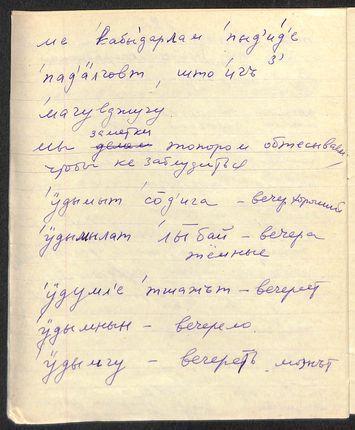 ме 'кабы́дарлам 'пыд'ѝд'е
'пад'ӓлговт, што 'игъ
'магувджугу.
мы заметки топором обтесываем,
чтобы не заблудиться
'ӱдымыт 'сӧд'ига – вечер хороший
'ӱдымылат 'лы̄бай – вечера
тёмные
'ӱдумл'е 'тшажът – вечереет
'ӱдымнын – вечерело.
'ӱдымгу – вечереть можът